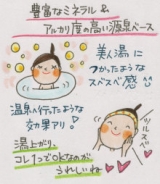 豊富なミネラル &
アルカリ度の高い源泉ベース
美人湯に
つかったような
スベスベ感
温泉へ行ったような
効果アリ!
ツルスベ
湯上がり、
コレ1つでOKなのが
うれしいね